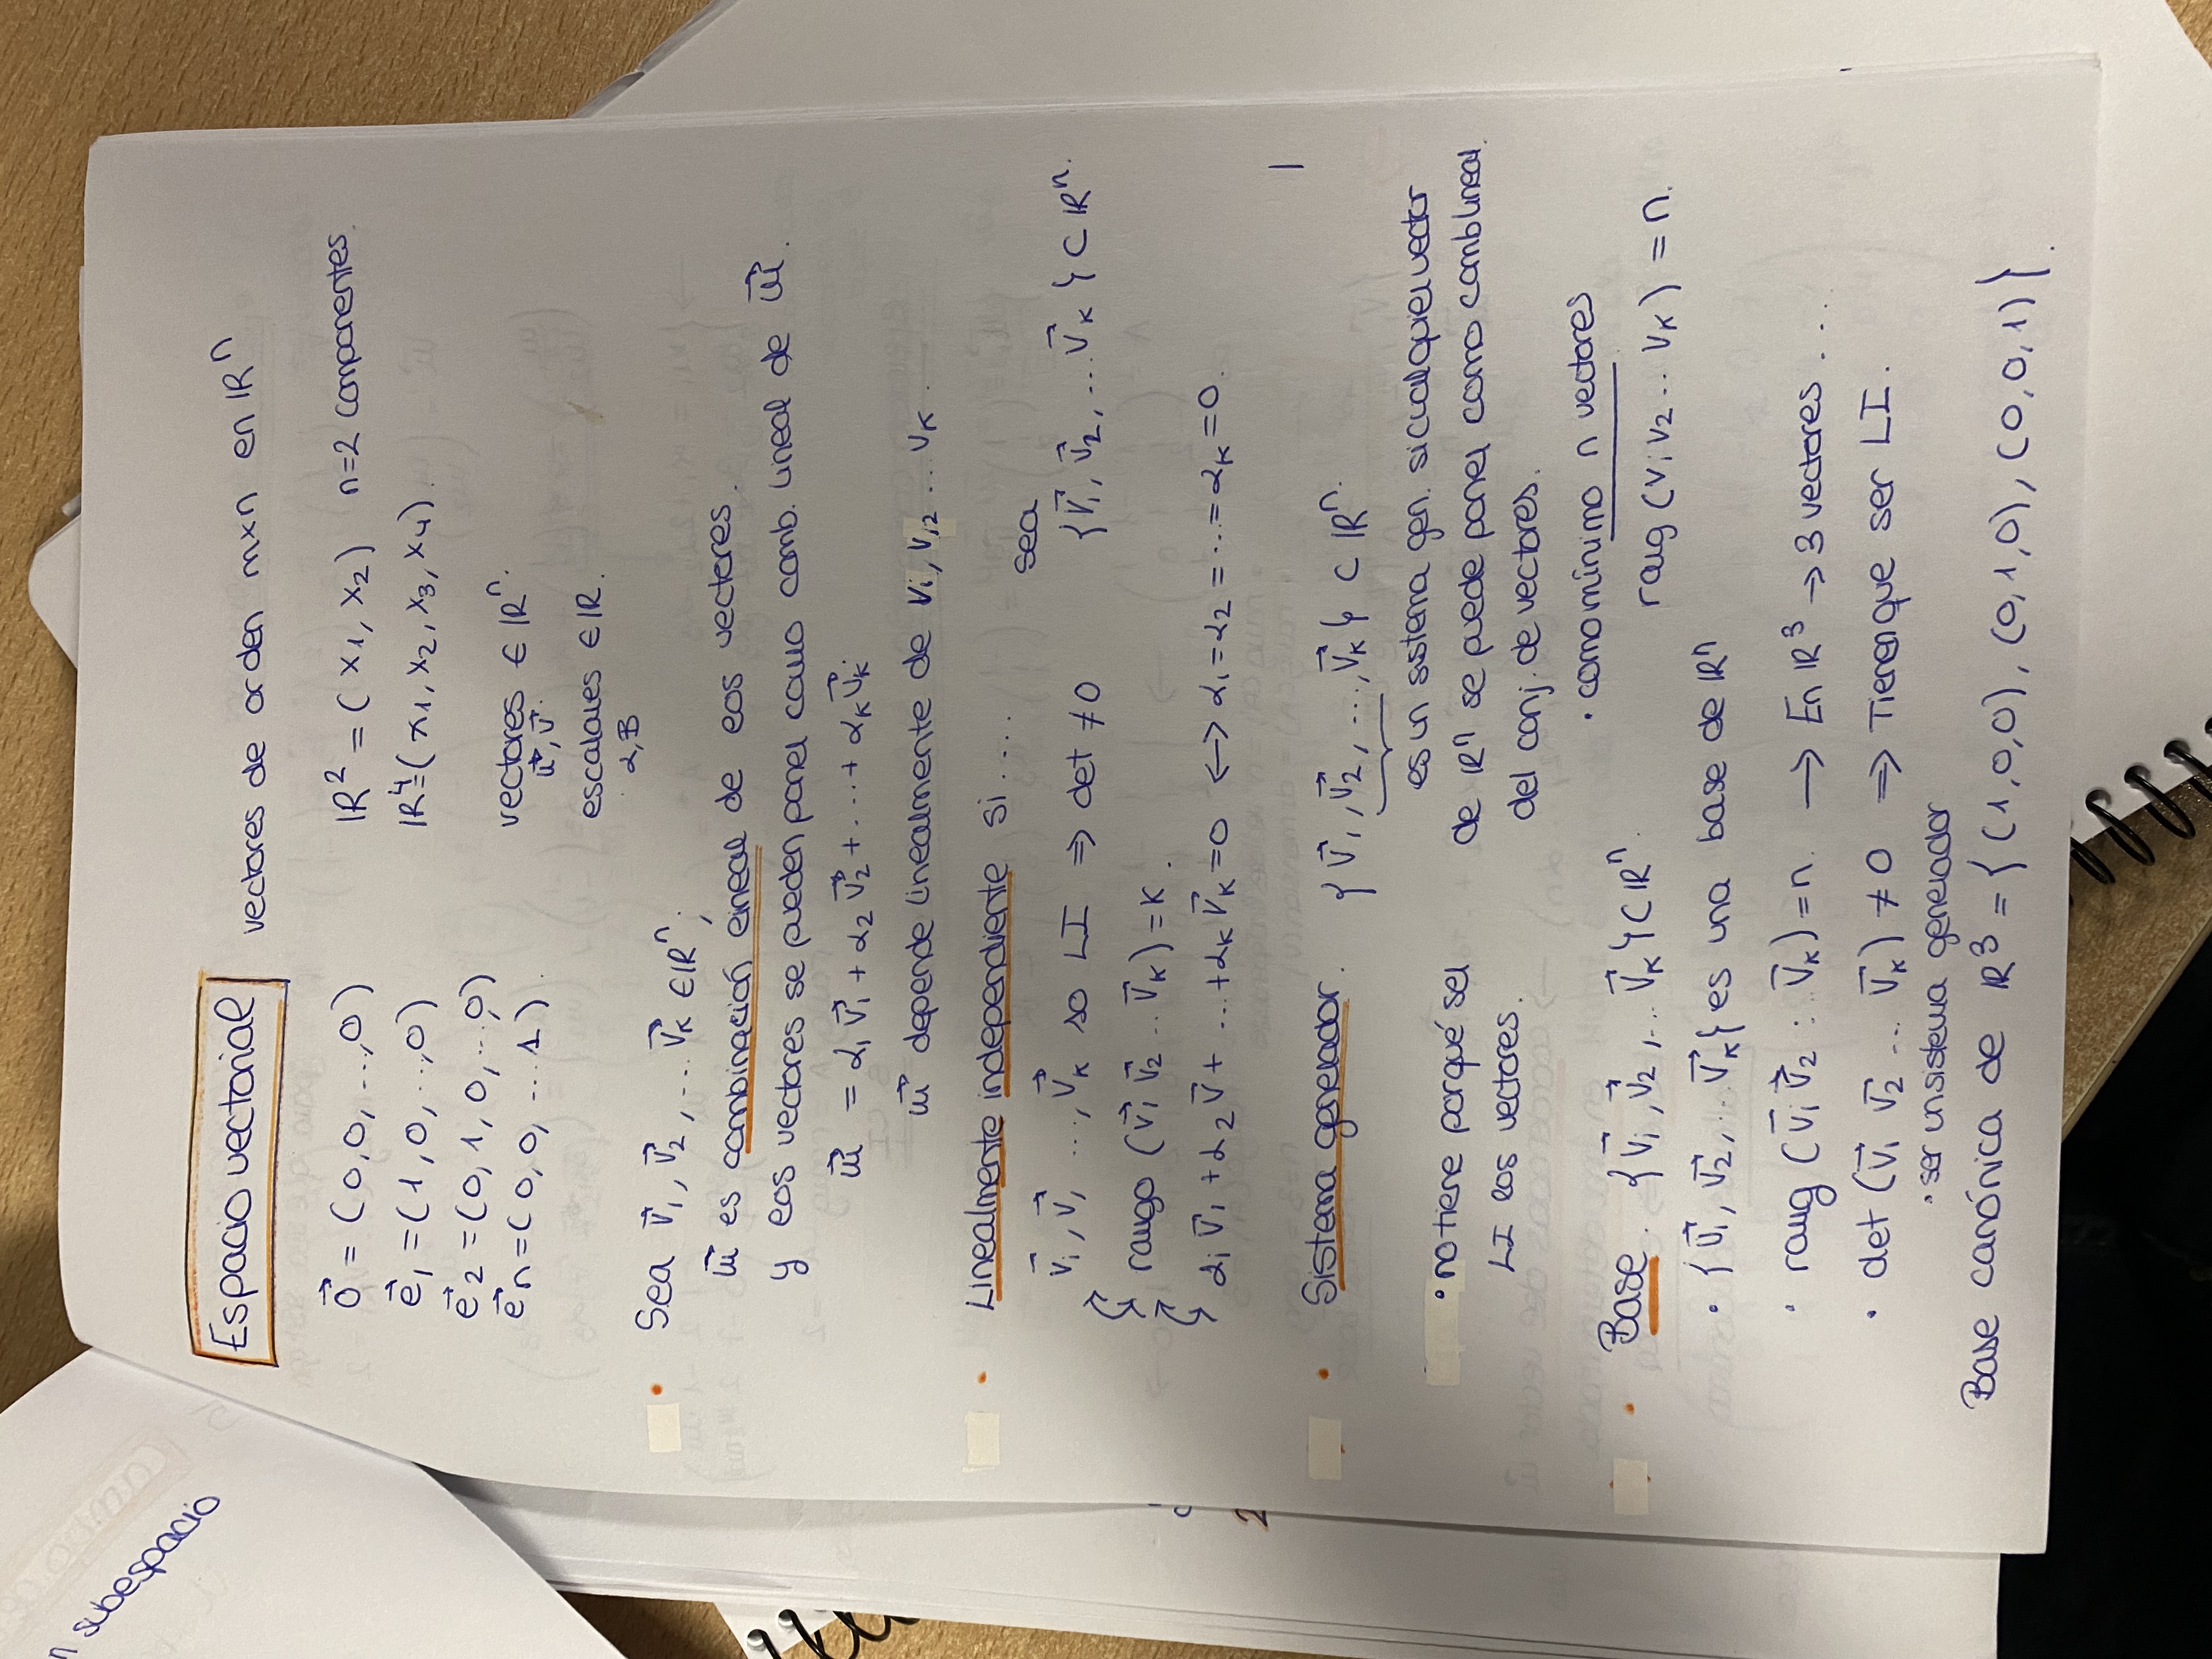 n subespacio
Espacio vectorial vectores de orden m×n en ℝⁿ
0⃗ = (0,0,...,0)
e⃗₁ = (1,0,...,0)
e⃗₂ = (0,1,0,...,0)
e⃗n = (0,0,...1).
ℝ² = (x₁, x₂) n=2 componentes.
ℝ⁴ = (x₁, x₂, x₃, x₄).
vectores ∈ ℝⁿ.
u⃗, v⃗.
escalares ∈ ℝ.
α, B
• Sea v⃗₁, v⃗₂, ... v⃗k ∈ ℝⁿ;
w⃗ es combinación lineal de los vectores.
y los vectores se pueden poner como comb. lineal de w⃗.
w⃗ = α₁ v⃗₁ + α₂ v⃗₂ + ... + αk v⃗k.
w⃗ depende linealmente de v₁, v₂ ... vk.
• Linealmente independiente si ....
v⃗₁, v⃗, ..., v⃗k so LI ⇒ det ≠ 0
sea
{v⃗₁, v⃗₂, ... v⃗k} ⊂ ℝⁿ.
rango (v⃗₁ v⃗₂ .. v⃗k) = k.
α₁ v⃗₁ + α₂ v⃗ + ... + αk v⃗k = 0 ↔ α₁ = α₂ = ... = αk = 0.
• Sistema generador. {v⃗₁, v⃗₂, ..., v⃗k} ⊂ ℝⁿ.
es un sistema gen. si cualquier vector
de ℝⁿ se puede poner como comb lineal.
del conj. de vectores.
• como mínimo n vectores
rang (v₁ v₂ .. vk) = n.
• no tiene porqué ser
LI los vectores.
• Base. {v⃗₁, v⃗₂, ... v⃗k} ⊂ ℝⁿ.
• {v⃗₁, v⃗₂, ... v⃗k} es una base de ℝⁿ
• rang (v⃗₁ v⃗₂ ... v⃗k) = n. → En ℝ³ → 3 vectores ....
• det (v⃗₁ v⃗₂ ... v⃗k) ≠ 0 ⇒ Tienen que ser LI.
• ser un sistema generador
Base canónica de ℝ³ = {(1,0,0), (0,1,0), (0,0,1)}.